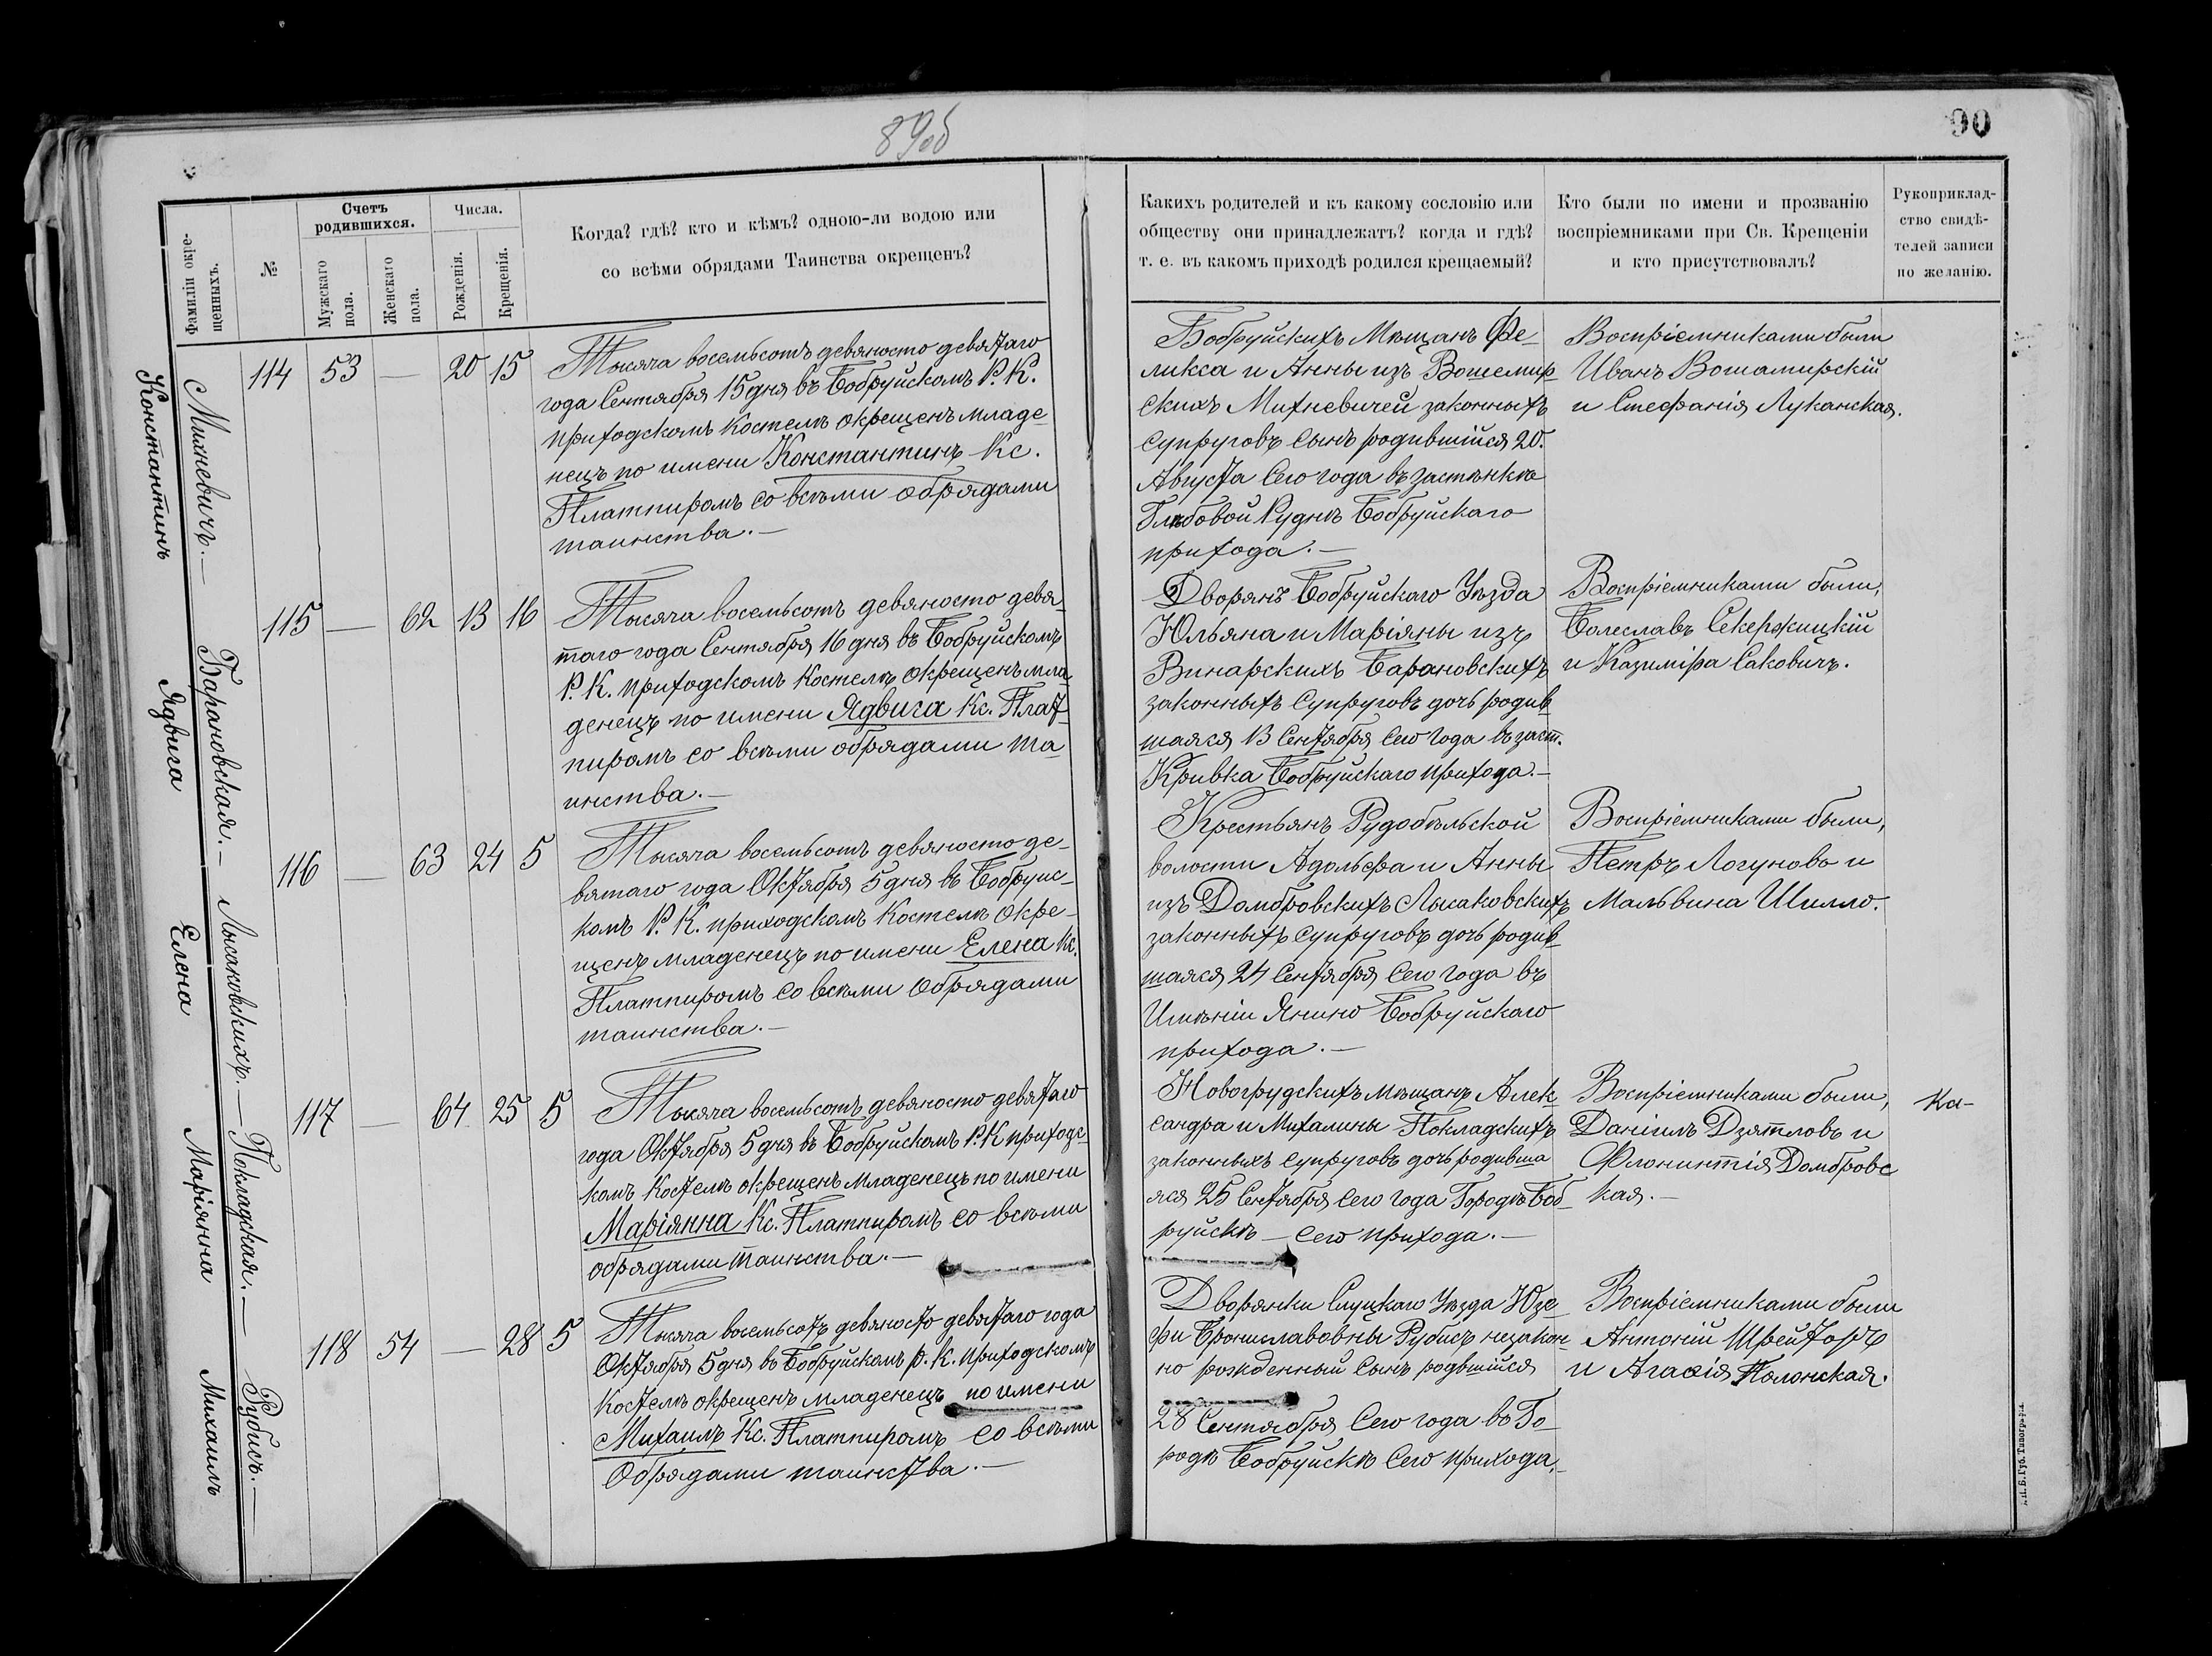 89об
90
Фамиліи окре-
щенныхъ.
№
Счетъ
родившихся.
Мужскаго
пола.
Женскаго
пола.
Числа.
Рожденія.
Крещенія.
Когда? гдѣ? кто и кѣмъ? одною-ли водою или
со всѣми обрядами Таинства окрещенъ?
Какихъ родителей и къ какому сословію или
обществу они принадлежатъ? когда и гдѣ?
т. е. въ какомъ приходѣ родился крещаемый?
Кто были по имени и прозванію
воспріемниками при Св. Крещеніи
и кто присутствовалъ?
Рукоприклад-
ство свидѣ-
телей записи
по желанію.
Михневичъ.—
Константинъ
114 53 — 20 15
Тысяча восемьсотъ девяносто девятаго
года Сентября 15 дня въ Бобруйскомъ Р. К.
приходскомъ Костелѣ окрещенъ младе-
нецъ по имени Константинъ Кс.
Платпиромъ со всѣми обрядами
таинства.—
Бобруйскихъ Мѣщанъ Фе-
ликса и Анны изъ Вошемир-
скихъ Михневичей законныхъ
супруговъ сынъ родившійся 20.
Августа сего года въ застѣнкѣ
Глѣбовой Руднѣ Бобруйскаго
прихода.—
Воспріемниками были
Иванъ Вошамирскій
и Стефанія Луканская.
Барановская.—
Ядвига
115 — 62 13 16
Тысяча восемьсотъ девяносто девя-
таго года Сентября 16 дня въ Бобруйскомъ
Р. К. приходскомъ Костелѣ окрещенъ мла-
денецъ по имени Ядвига Кс. Плат-
пиромъ со всѣми обрядами та-
инства.—
Дворянъ Бобруйскаго Уѣзда
Юльяна и Маріяны изъ
Винарскихъ Барановскихъ
законныхъ супруговъ дочь родив-
шаяся 13 Сентября сего года въ заст.
Кривка Бобруйскаго прихода.—
Воспріемниками были,
Болеславъ Секержицкій
и Казиміра Саковичъ.
Лысаковскихъ.—
Елена
116 — 63 24 5
Тысяча восемьсотъ девяносто де-
вятаго года Октября 5 дня въ Бобруйс-
комъ Р. К. приходскомъ Костелѣ окре-
щенъ младенецъ по имени Елена Кс.
Платпиромъ со всѣми обрядами
таинства.—
Крестьянъ Рудобѣльской
волости Адольфа и Анны
изъ Домбровскихъ Лысаковскихъ
законныхъ супруговъ дочь родив-
шаяся 24 Сентября сего года въ
Имѣніи Янино Бобруйскаго
прихода.—
Воспріемниками были,
Петръ Логуновъ и
Мальвина Шилло.
Покладская.—
Маріянна
117 — 64 25 5
Тысяча восемьсотъ девяносто девятаго
года Октября 5 дня въ Бобруйскомъ Р. К приходс-
комъ Костелѣ окрещенъ младенецъ по имени
Маріянна Кс. Платпиромъ со всѣми
обрядами таинства.—
Новогрудскихъ мѣщанъ Алек-
сандра и Михалины Покладскихъ
законныхъ супруговъ дочь родивша
яся 25 Сентября сего года Городѣ Боб-
руйскѣ — сего прихода.—
Воспріемниками были,
Даніилъ Дзятловъ и
Флонинтія Домбровс
кая.—
Ка-
Рубисъ.—
Михаилъ
118 54 — 28 5
Тысяча восемьсотъ девяносто девятаго года
Октября 5 дня въ Бобруйскомъ р. К. приходскомъ
Костелѣ окрещенъ младенецъ по имени
Михаилъ Кс. Платпиромъ со всѣми
обрядами таинства.—
Дворянки Слуцкаго Уѣзда Юзе-
фи Брониславовны Рубисъ незакон-
но рожденный сынъ родвшійся
28 Сентября сего года въ Го-
родѣ Бобруйскѣ сего прихода.
Воспріемниками были
Антоній Шрейторъ
и Агафія Полонская.